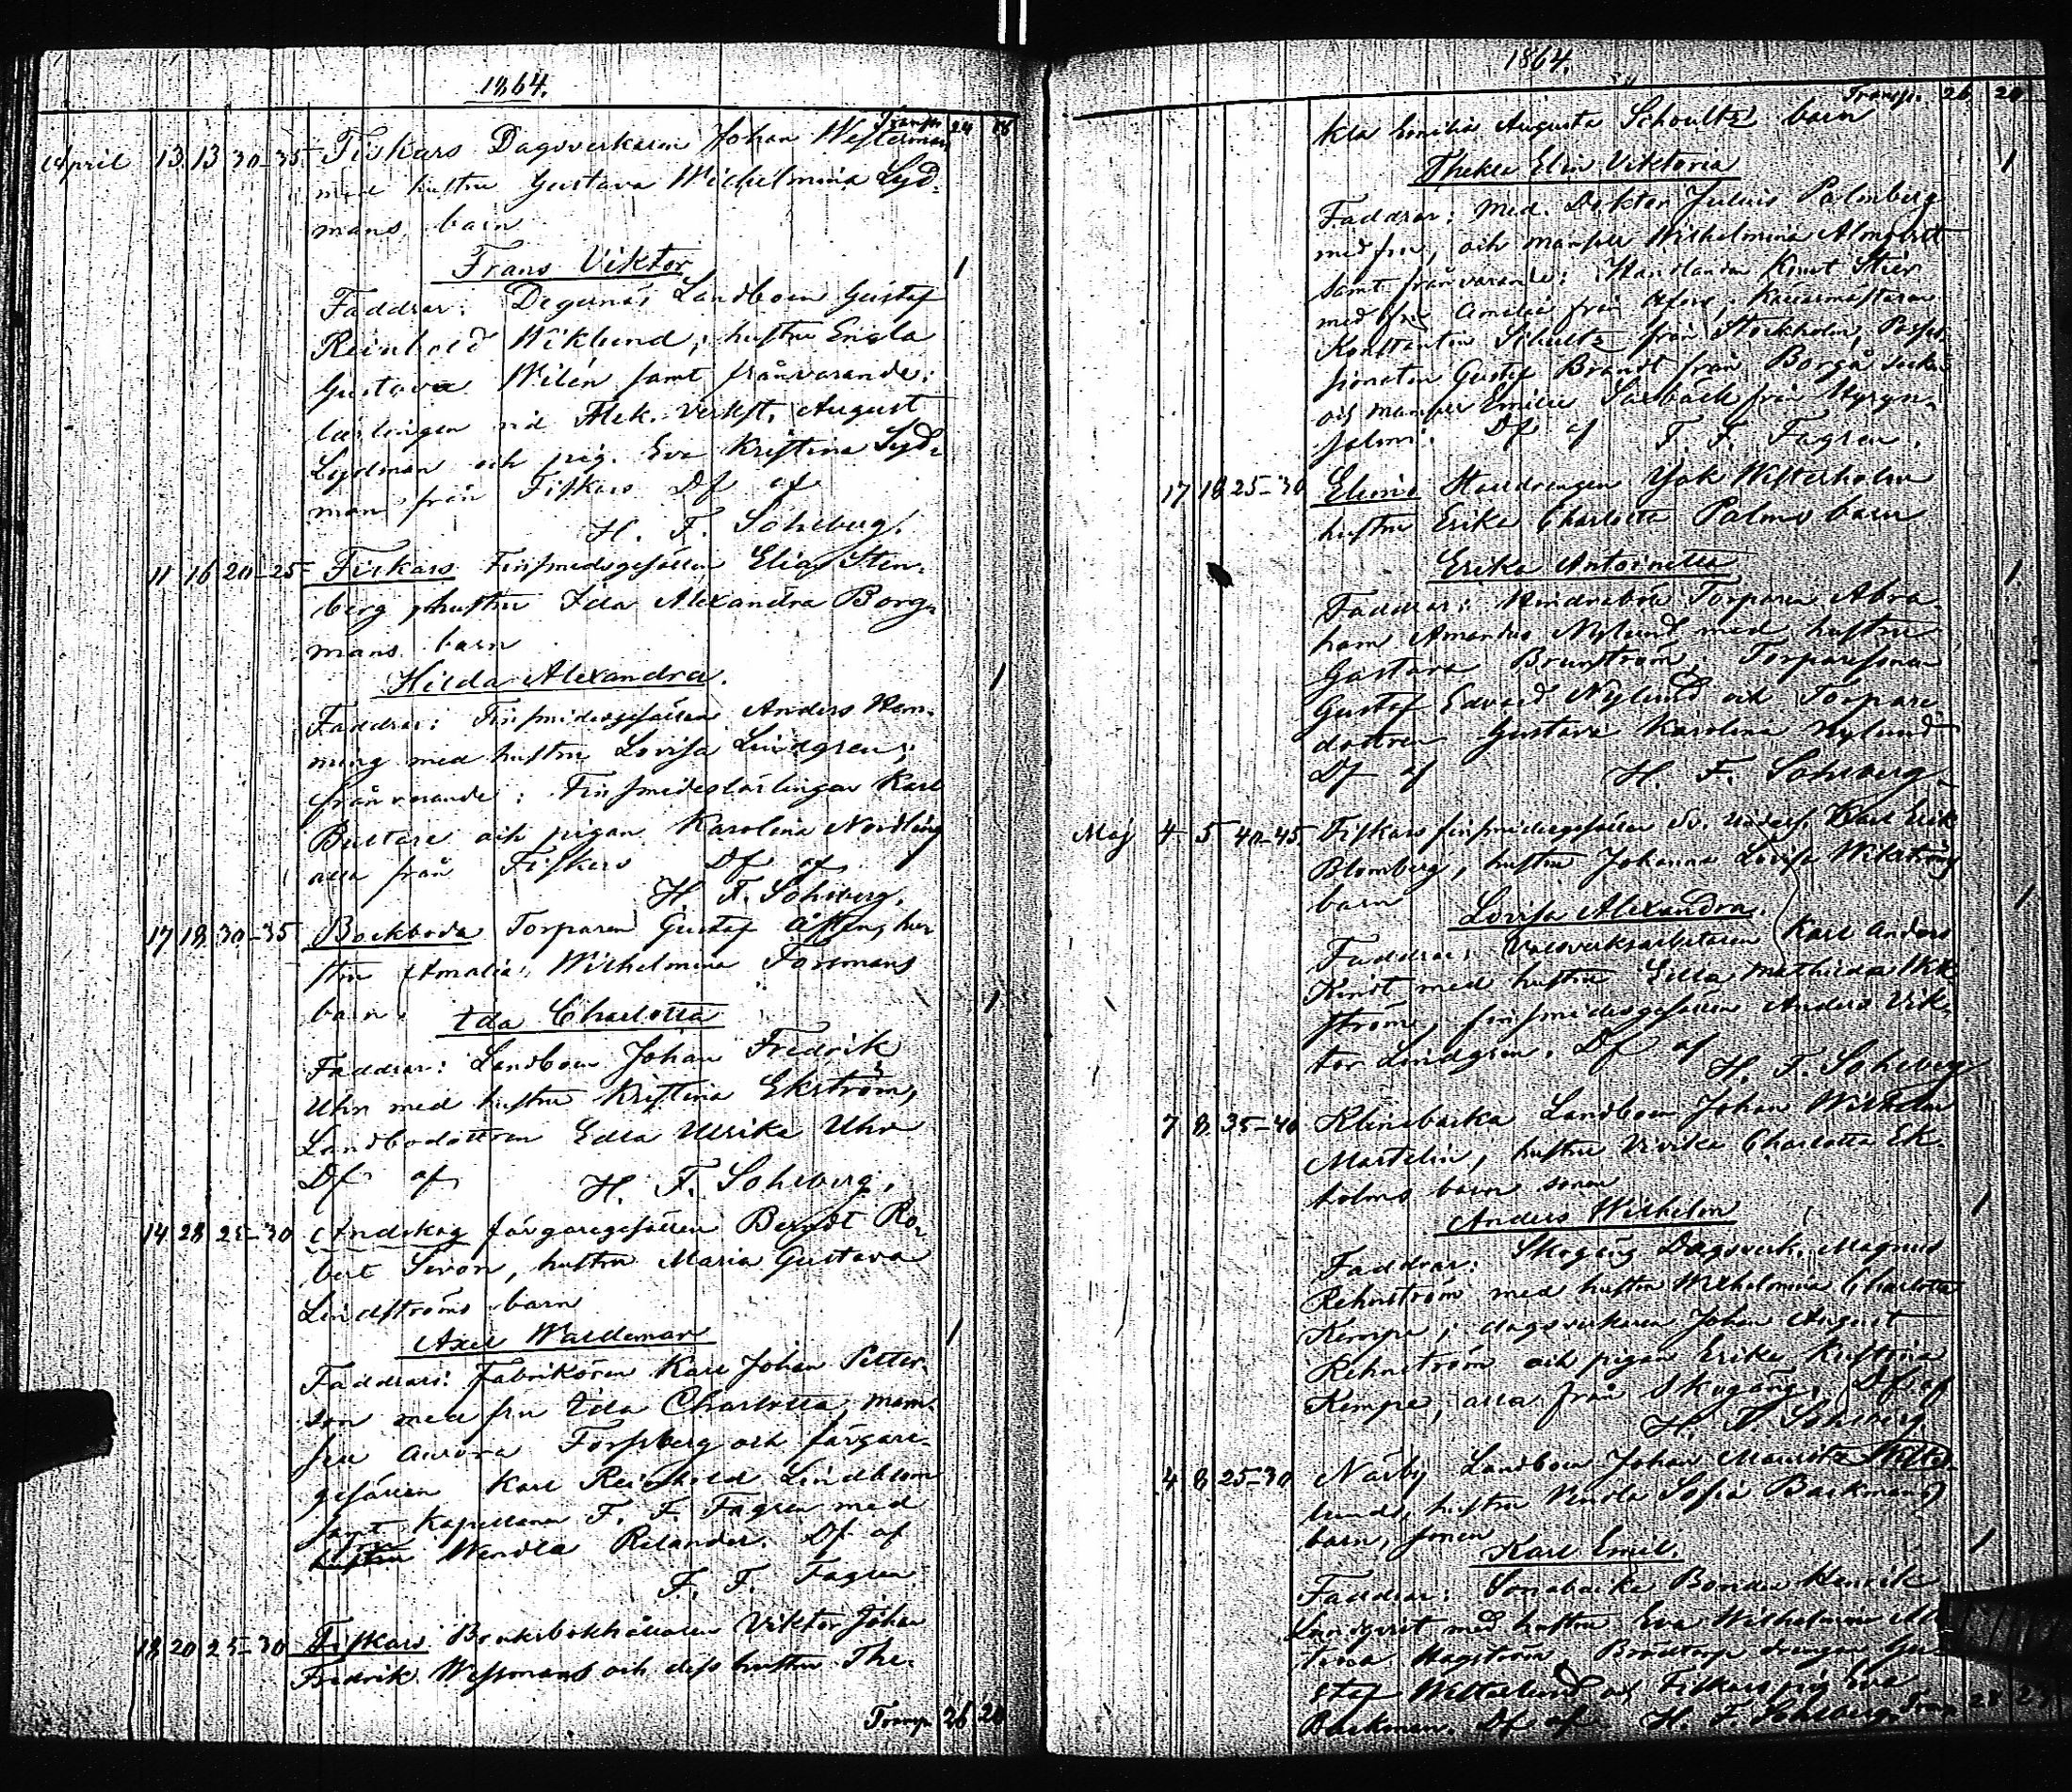 1864.
Transp. 24 18
April 13 13 30-35 Fiskars Dagsverkaren Johan Westerman
med hustru Gustava Wilhelmina Lyd-
mans barn
Frans Viktor 1
Faddrar: Degernäs Landboen Gustaf
Reinhold Wiklund, hustru Engla
Gustava Wilén samt frånvarande:
lärlingen vid Mek. Verkst. August
Lydman och pig. Eva Kristina Lyd-
man från Fiskars Df af
H. F. Sohlberg.
11 16 20-25 Fiskars Finsmedsgesällen Elias Sten-
berg hustru Ida Alexandra Borg-
mans barn
Hilda Alexandra. 1
Faddrar: Finsmidesgesällen Anders Hen-
ning med hustru Lovisa Lindgren;
frånvarande: Finsmideslärlingen Karl
Bultare och pigan Karolina Nordling
alla från Fiskars Df af
H. F. Sohlberg.
17 18 30-35 Bockboda Torparen Gustaf Åsten, hu-
stru Amalia Wilhelmina Forsmans
barn 1
Ida Charlotta
Faddrar: Landboen Johan Fredrik
Uhr med hustru Kristina Ekström,
Landbodottren Edla Ulrika Uhr
Df af H. F. Sohlberg.
14 28 25-30 Andskog färgaregesällen Berndt Ro-
bert Sevon, hustru Maria Gustava
Lindströms barn
Axel Waldemar 1
Faddrar: Fabrikören Karl Johan Petter-
son med fru Ida Charlotta, mam-
sell Aurora Forssberg och färgare-
gesällen Karl Reinhold Lindblom
samt Kapellanen F. F. Fagren med
fru
hustru Wendla Relander. Df af
F. F. Fagren
18 20 25-30 Fiskars Bruksbokhållaren Viktor Johan
Fredrik Wessmans och dess hustru The-
Transp 26 20
1864.
Transp. 26 20
kla Emilia Augusta Schoultz barn
Thekla Elin Viktoria 1
Faddrar: Med. Doktor Julius Palmberg
med fru, och mamsell Wilhelmina Almqvist
samt frånvarande: Handlanden Knut Stier
med fru Amelie från
Konstantin Schultz från Stockholm, Posses-
sionaten Gustaf Brandt från Borgå
och mamsell Emilie från
Df af F. F. Fagren.
17 18 25-30 Elimo Stalldrengen Isak Westerholm
hustru Erika Charlotta Palms barn
Erika Antoinetta 1
Faddrar: Torparen Abra-
ham Amandus Nylund med hustru
Gustava Brunström, Torparesonen
Gustaf Edvard Nylund och Torpare-
dottren Gustava Karolina Nylund
Df af H. F. Sohlberg.
Maj 4 5 40-45 Fiskars finsmidesgesällen Karl Erik
Blomberg, hustru Johanna Lovisa Wikström
barn 1
Lovisa Alexandra.
Faddrar: Valsverksarbetaren Karl Anders
Rindt med hustru Edla Mathilda Wik-
ström, finsmidesgesällen Anders Vik-
tor Lindgren. Df af
H. F. Sohlberg
7 8 35-40 Klinkbacka Landboen Johan Wilhelm
Martelin, hustru Vivika Charlotta Ek-
holms barn sonen
Anders Wilhelm 1
Faddrar: Skogäng Dagsverk. Magnus
Rehnström med hustru Wilhelmina Charlotta
Kempe, dagsverkaren Johan August
Rehnström och pigan Erika Kristina
Kempe, alla från Skogäng. Df af
H. F. Sohlberg
4 8 25-30 Närby Landboen Johan Mauritz Wester-
lund, hustru Vendla Sofia Backmans
barn, sonen
Karl Emil. 1
Faddrar: Sonabacka Bonden Henrik
Lindqvist med hustru Eva Wilhelmina
Hagström, drengen Gu-
staf Westerlund och Fiskars pig Eva
Backman. Df af H. F. Sohlberg.